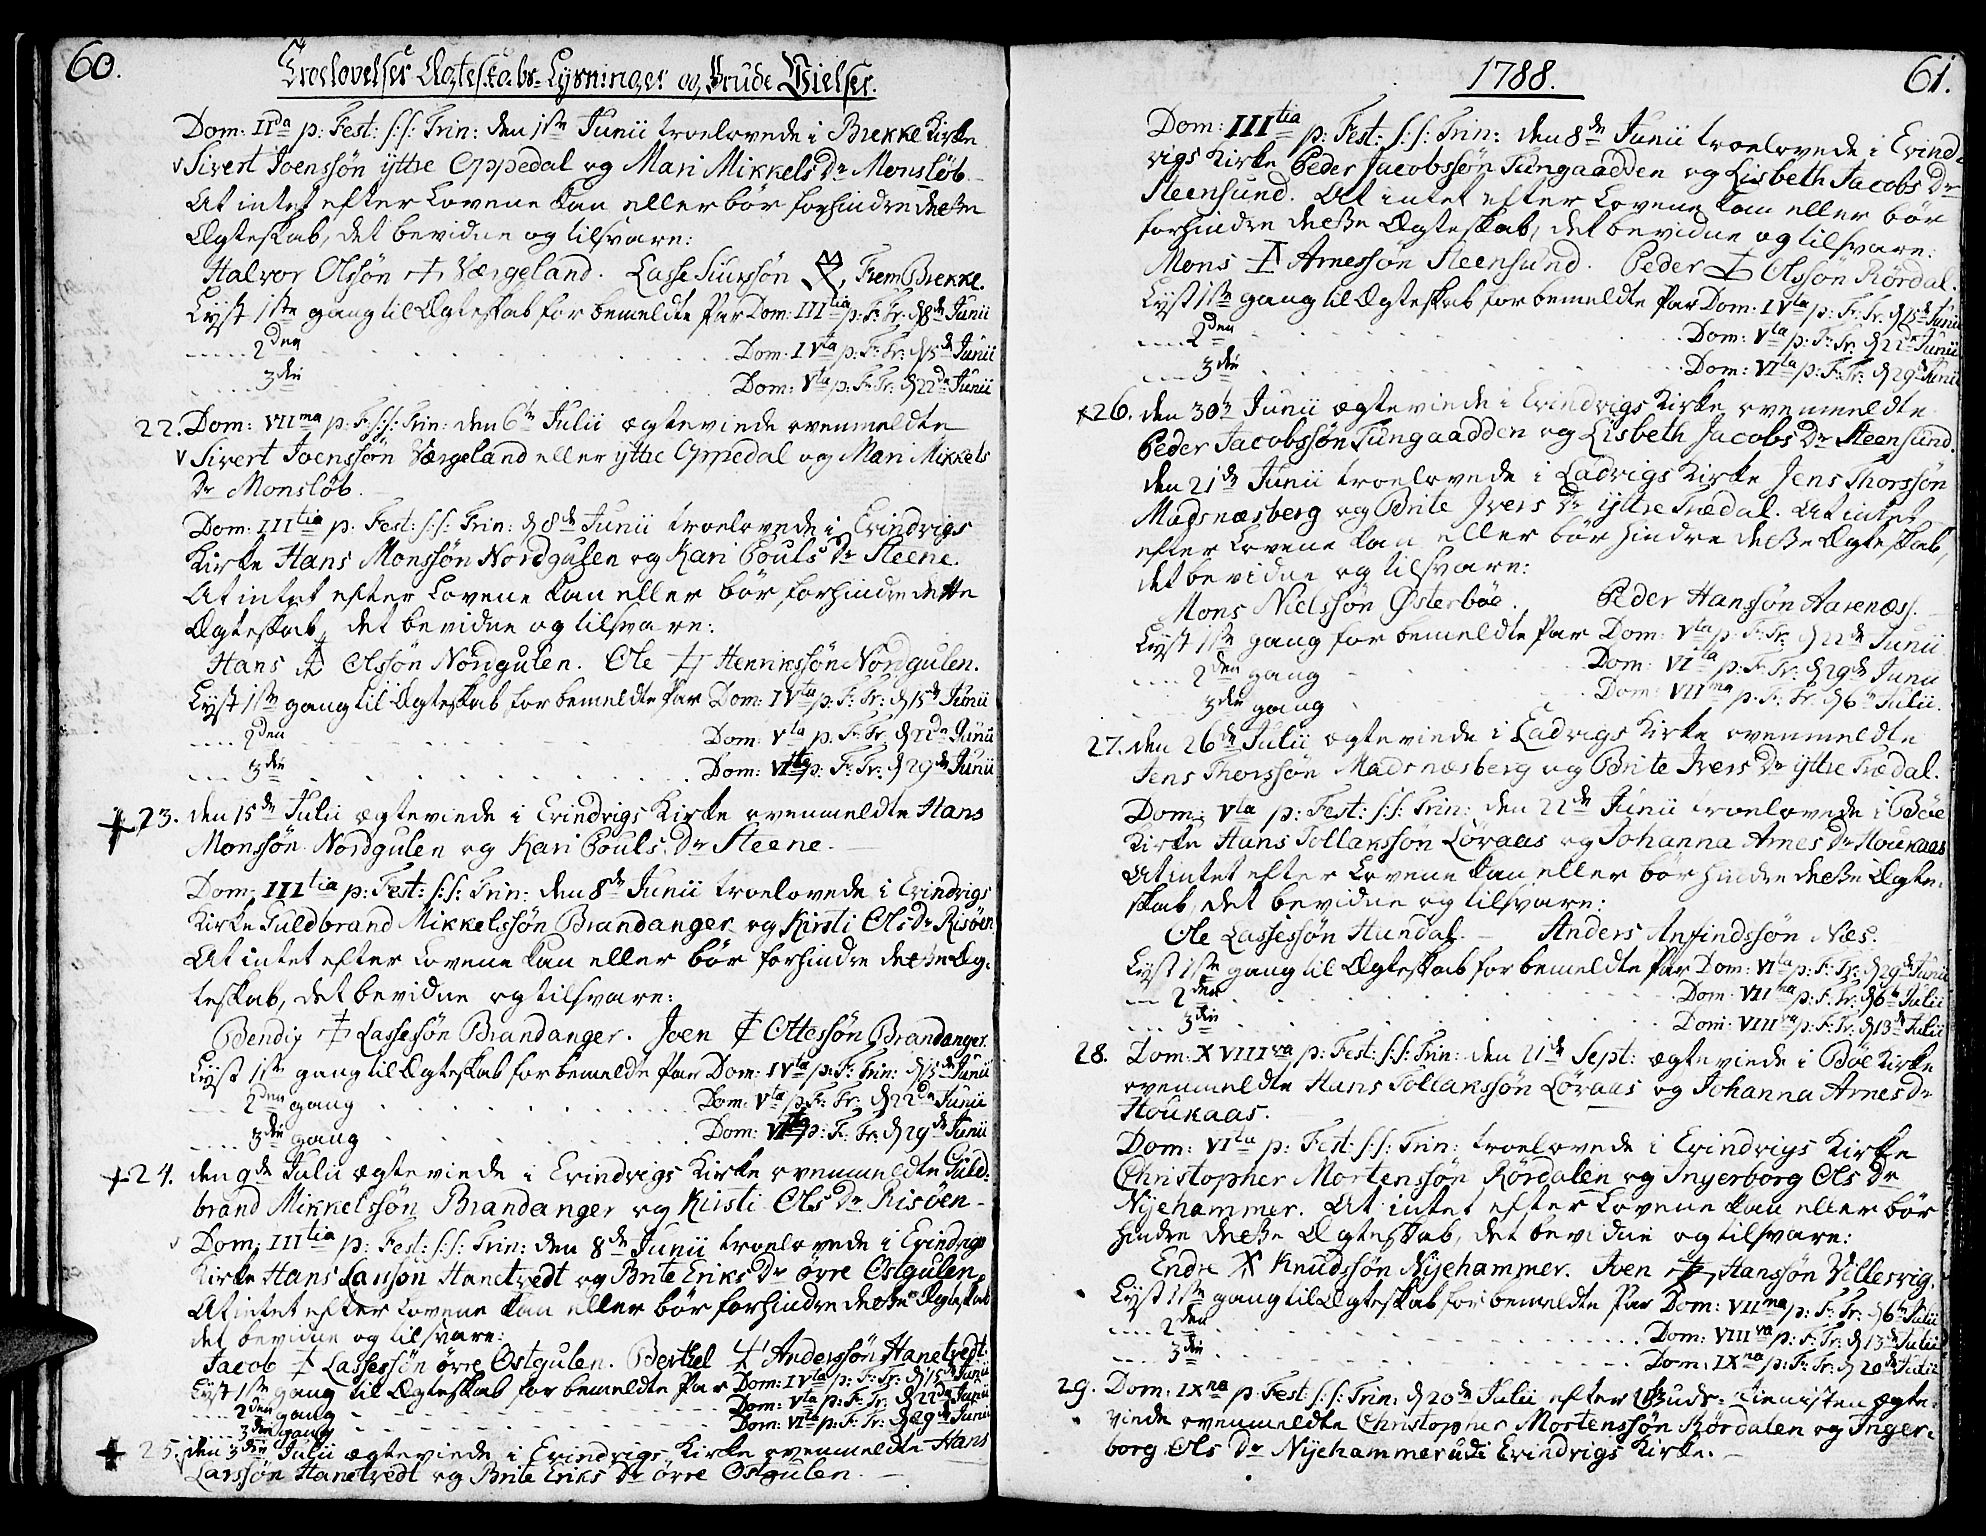 60.
Troelovelser Ægteskabs-Lysninger og Brude Vielser.
Dom: IIda p: Fest: S:S: Trin: den 1ste Junii troelovede i Brekke Kirke
v Sivert Joenssøn yttre Oppedal og Mari Mikkels Dr Monsløb.
At intet efter Lovene kan eller bør forhindre deße
Ægteskab, det bevidne og tilsvare:
Halvor Olssøn Værgeland. Lasse Siurssøn Frem Brekke.
Lyst 1ste gang til Ægteskab for bemeldte Par Dom: IIItia p: F: Tr: d 8de Junii
..... 2den . . . . . Dom: IVta p: F: Tr: d 15de Junii
..... 3die . . . . . Dom: Vta p: F: Tr: d 22de Junii
22. Dom: VIIma p: F: S:S: Trin: den 6te Julii ægteviede ovenmeldte
v Sivert Joenssøn Værgeland eller yttre Oppedal og Mari Mikkels
Dr Monsløb.
Dom: IIItia p: Fest: S:S: Trin: d 8de Junii troelovede i Evindvigs
Kirke Hans Monssøn Nordgulen og Kari Pouls Dr Steene.
At intet efter Lovene kan eller bør forhindre dette
Ægteskab, det bevidne og tilsvare:
Hans Olssøn Nordgulen. Ole Henrikssøn Nordgulen.
Lyst 1ste gang til Ægteskab for bemeldte Par Dom: IVta p: F: Tr: d 15de Junii
.... 2den . . . . . Dom: Vta p: F: Tr: d 22de Junii
.... 3die . . . . . Dom: VIta p: F: Tr: d 29de Junii
23. den 15de Julii ægteviede i Evindvigs Kirke ovenmeldte Hans
Monssøn Nordgulen og Kari Pouls Dr Steene.
Dom: IIItia p: Fest: S:S: Trin: den 8de Junii troelovede i Evindvigs
Kirke Guldbrand Mikkelssøn Brandanger og Kirsti Ols Dr Risøen
At intet efter Lovene kan eller bør forhindre deße Æg-
teskab, det bevidne og tilsvare:
Bendix Lassesøn Brandanger. Joen Ottessøn Brandanger.
Lyst 1ste gang til Ægteskab for bemeldte Par Dom: IVta p: F: Trin: d 15de Junii
.... 2den gang . . . . . Dom: Vta p: F: Tr: d 22de Junii
.... 3die gang . . . . . Dom: VIta p: F: Tr: d 29de Junii
24. den 9de Julii ægteviede i Evindvigs Kirke ovenmeldte Guld-
brand Mikkelssøn Brandanger og Kirsti Ols Dr Risøen
Dom: IIItia p: Fest: S:S: Trin: den 8de Junii troelovede i Evindvigs
Kirke Hans Larssøn Hanetvedt og Brite Eriks Dr øvre Ostgulen.
At intet efter Lovene kan eller bør forhindre deße Ægteskab
det bevidne og tilsvare:
Jacob Lassessøn øvre Ostgulen. Berthel Anderssøn Hanetvedt.
Lyst 1ste gang til Ægteskab for bemeldte Par Dom: IVta p: F: Tr: d 15de Junii
.... 2den gang . . . . . Dom: Vta p: F: Tr: d 22de Junii
.... 3die gang . . . . . Dom: VIta p: F: Tr: d 29de Junii
25. den 3die Julii ægteviede i Evindvigs Kirke ovenmeldte Hans
Larssøn Hanetvedt og Brite Eriks Dr øvre Ostgulen.
1788.
61.
Dom: IIItia p: Fest: S:S: Trin: den 8de Junii troelovede i Evind-
vigs Kirke Peder Jacobssøn Tungaadden og Lisbeth Jacobs Dr
Steensund. At intet efter Lovene kan eller bør
forhindre deße Ægteskab, det bevidne og tilsvare:
Mons Arnessøn Steensund. Peder Olssøn Rørdal.
Lyst 1ste gang til Ægteskab for bemeldte Par Dom: IVta p: F: Tr: d 15de Junii
.... 2den . . . . . Dom: Vta p: F: Tr: d 22de Junii
.... 3die . . . . . Dom: VIta p: F: Tr: d 29de Junii
26. den 30te Junii ægteviede i Evindvigs Kirke ovenmeldte
Peder Jacobssøn Tungaadden og Lisbeth Jacobs Dr Steensund.
den 21de Junii troelovede i Ladvigs Kirke Jens Thorssøn
Madsnæsberg og Brite Ivers Dr yttre Trædal. At intet
efter Lovene kan eller bør hindre deße Ægteskab,
det bevidne og tilsvare:
Mons Nielssøn Østerbøe. Peder Hanssøn Aarenæss.
Lyst 1ste gang for bemeldte Par Dom: Vta p: F: Tr: d 22de Junii
.... 2den gang . . . Dom: VIta p: F: Tr: d 29de Junii
3die gang . . . Dom: VIIma p: F: Tr: d 6te Julii.
27. den 26de Julii ægteviede i Ladvigs Kirke ovenmeldte
Jens Thorssøn Madsnæsberg og Brite Ivers Dr yttre Trædal.
Dom: Vta p: Fest: S:S: Trin: den 22de Junii troelovede i Bøe
Kirke Hans Tollakssøn Løraas og Johanna Arnes Dr Houkaas
At intet efter Lovene kan eller bør hindre deße Ægte-
skab, det bevidne og tilsvare:
Ole Lassessøn Hundal. Anders Anfindssøn Næs.
Lyst 1ste gang til Ægteskab for bemeldte Par Dom: VIta p: F: Tr: d 29de Junii
.... 2den . . . . . Dom: VIIma p: F: Tr: d 6te Julii
.... 3die . . . . . Dom: VIIIva p: F: Tr: d 13de Julii
28. Dom: XVIIIva p: Fest: S:S: Trin: den 21de Sept: ægteviede i Bøe Kirke
ovenmeldte Hans Tollakssøn Løraas og Johanna Arnes Dr
Houkaas.
Dom: VIta p: Fest: S:S: Trin: troelovede i Evindvigs Kirke
Christopher Mortenssøn Rørdalen og Ingerborg Ols Dr
Nijehammer. At intet efter Lovene kan eller bør
hindre deße Ægteskab, det bevidne og tilsvare:
Endre Knudssøn Nijehammer. Joen Hanssøn Villesvig.
Lyst 1ste gang til Ægteskab for bemeldte Par Dom: VIIma p: F: Tr: d 6te Julii
.... 2den . . . . . Dom: VIIIva p: F: Tr: d 13de Julii
.... 3die . . . . . Dom: IXna p: F: Tr: d 20de Julii
29. Dom: IXna p: Fest: S:S: Trin: d 20de Julii efter Guds-Tienisten ægte-
viede ovenmeldte Christopher Mortenssøn Rørdalen og Inger-
borg Ols Dr Nijehammer udi Evindvigs Kirke.